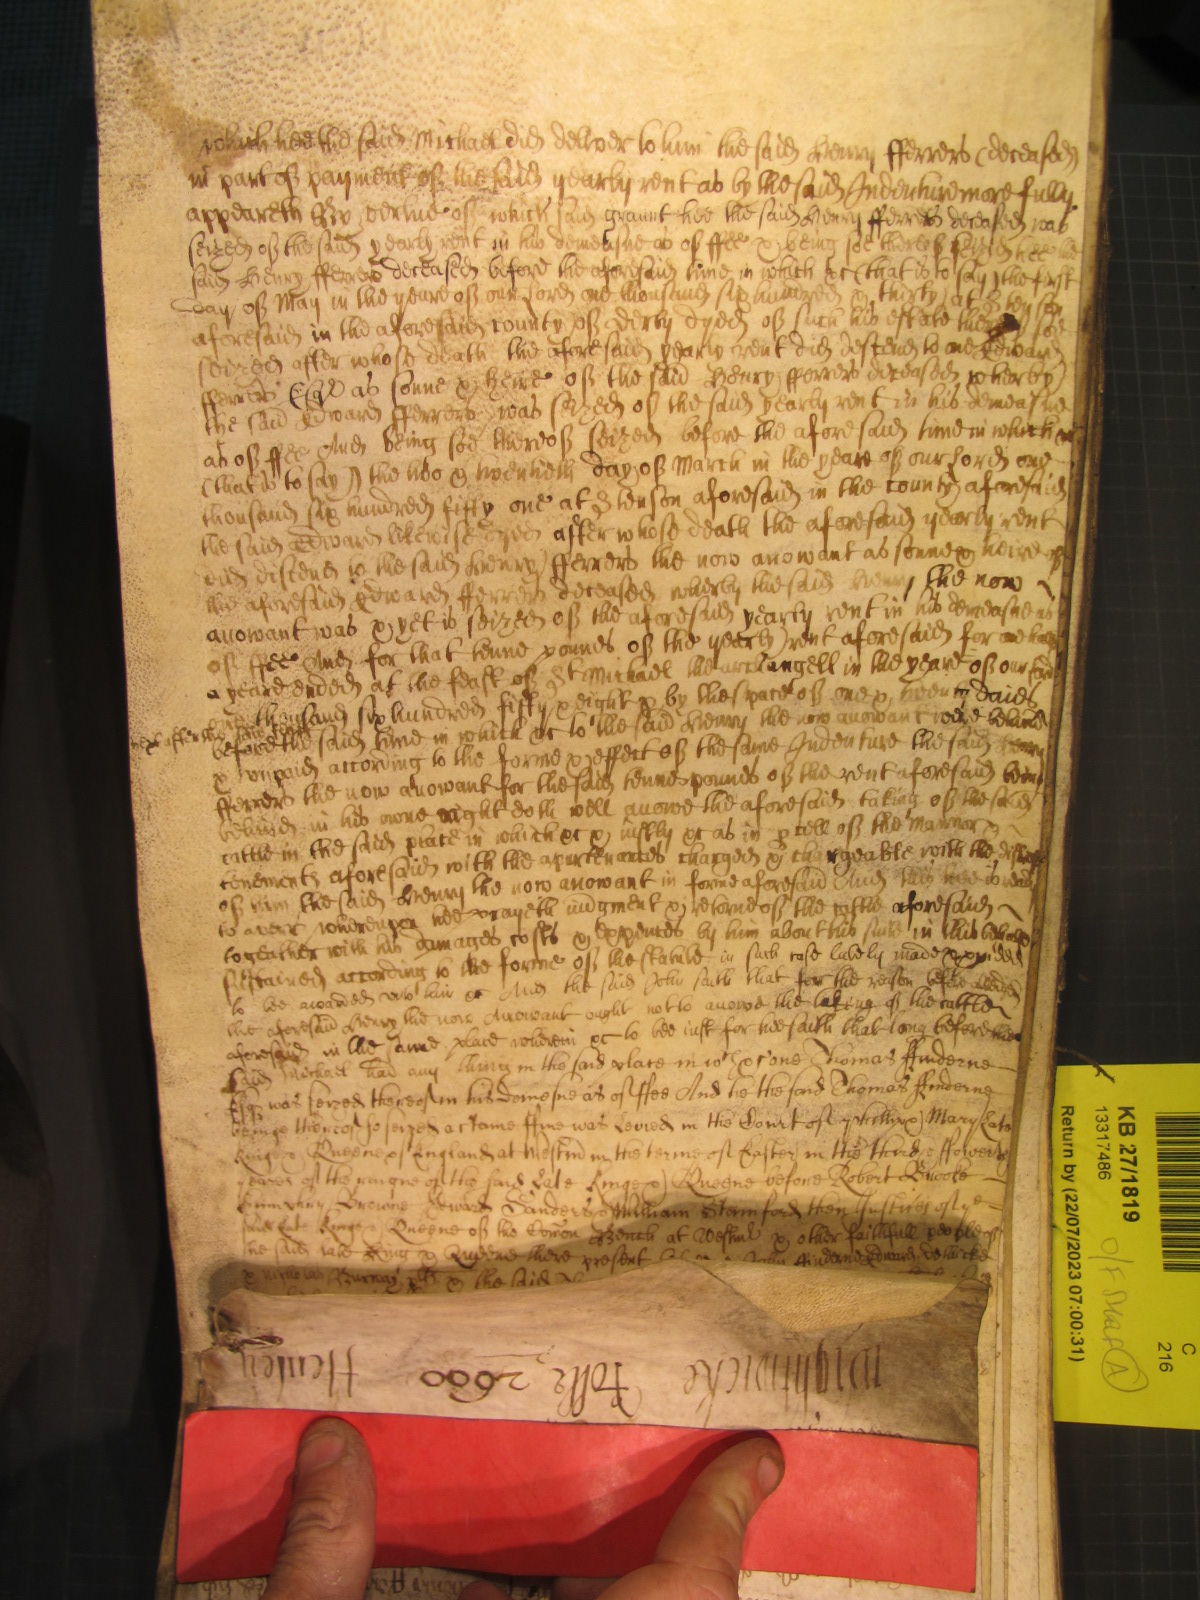 which hee the said Michael did deliver to him the said Henry fferrers (deceased)
in part of payment of the said yearly rent as by the said Indenture more fully
appeareth By vertue of which said graunt hee the said Henry fferrers deceased was
seized of the said yearly rent in his demeasne as of ffee & being soe thereof seized hee the
said Henry fferrers deceased before the aforesaid time in which &c (that is to say) the first
day of May in the yeare of our Lord one thousand six hundred & thirty at
aforesaid in the aforesaid county of Derby dyed of such his estate soe
seized after whose death the aforesaid yearly rent did descend to one Edward
fferrers Esqr as sonne & heire of the said Henry fferrers deceased wherby
the said Edward fferrers was seized of the said yearly rent in his demeasne
as of ffee And being soe thereof seized before the aforesaid time in which &c
(that is to say) the two & twentieth day of March in the yeare of our Lord one
thousand six hundred fifty one at aforesaid in the county aforesaid
the said Edward likewise dyed after whose death the aforesaid yearly rent
did discend to the said Henry fferrers the now avowant as sonne & heire of
the aforesaid Edward fferrers deceased wherby the said Henry the now
avowant was & yet is seized of the aforesaid yearly rent in his demeasne as
of ffee And for that tenne pounds of the yearly rent aforesaid for one halfe
a yeare ended at the feast of St Michael the archangell in the yeare of our Lord
one thousand six hundred fifty & eight & by the space of one & twenty daies
next after the
before the said time in which &c to the said Henry the now avowant were behind
& unpaid according to the forme & effect of the same Indenture the said Henry
fferrers the now avowant for the said tenne pounds of the rent aforesaid being
behind in his owne right doth well avowe the aforesaid taking of the said
cattle in the said place in which &c & iustly &c as in pcell of the mannor &
tenements aforesaid with the apurtenances charged & chargeable with the distresse
of him the said Henry the now avowant in forme aforesaid And this hee is ready
to averr wherupon hee prayeth iudgment & retorne of the cattle aforesaid
togeather with his damages costs & expences by him about his suite in this behalfe
sustained according to the forme of the statute in such case lately made & pvided
to be awarded unto him &c And the said John saith that for the reason before alledged
the aforesaid Henry the now Avowant ought not to avowe the taking of the cattle
aforesaid in the same place wherein &c to bee iust for hee saith that long before the
said Michael had any thing in the said place in wch &c one Thomas ffinderne
Esqr was seized thereof in his demesne as of ffee And he the said Thomas ffinderne
beinge thereof so seized a certaine ffine was levied in the Court of Phillipp & Mary late
Kinge & Queene of England at Westmr in the terme of Easter in the third & fowerth
yeares of the raigne of the said late Kinge & Queene before Robert Brooke
Humphry Browne Edward Sanders & William Stamford then Justices of ye
said late Kinge & Queene of the Comon Bench at Westmr & other faithfull people of
the said late King & Queene there present John ffinderne
& Nicholas Burnay plts & the said
Wightwicke Posse 2660 Henley
KB 27/1819
13317486
O/F Draf A
Return by (22/07/2023 07:00:31)
C
216